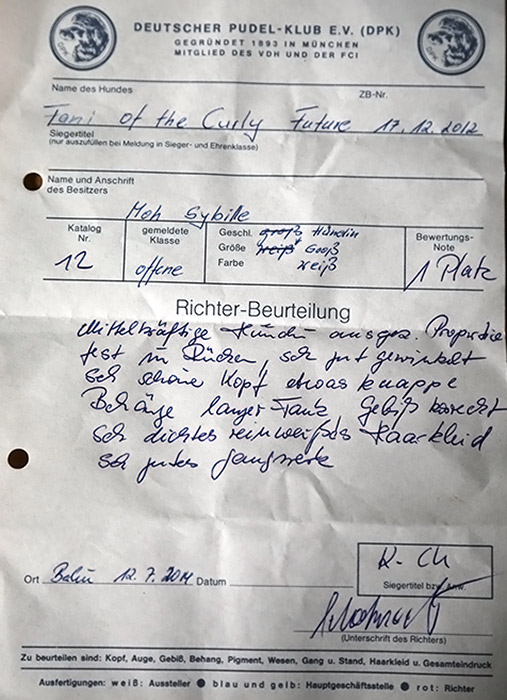 DEUTSCHER PUDEL-KLUB E.V. (DPK)
GEGRÜNDET 1893 IN MÜNCHEN
MITGLIED DES VDH UND DER FCI
DPK
DPK
Name des Hundes
ZB-Nr.
Fani of the Curly Future 17.12.2012
Siegertitel
(nur auszufüllen bei Meldung in Sieger- und Ehrenklasse)
Name und Anschrift
des Besitzers
Moh Sybille
Katalog Nr.
12
gemeldete Klasse
offene
Geschl. groß Hündin
Größe weiß Groß
Farbe weiß
Bewertungs-Note
1 Platz
Richter-Beurteilung
Mittelkräftige Hündin ausgez. Proportie
fest im Rücken, seh gut gewinkelt
seh schöne Kopf etwas knappe
Behänge langer Fang Gebiß korrekt
seh dichtes reinweißes Haarkleid
seh gutes Gangwerk
Ort Berlin 12.7.2014 Datum
R. CH
Siegertitel bzw. Anw.
(Unterschrift des Richters)
Zu beurteilen sind: Kopf, Auge, Gebiß, Behang, Pigment, Wesen, Gang u. Stand, Haarkleid u. Gesamteindruck
Ausfertigungen: weiß: Aussteller ● blau und gelb: Hauptgeschäftsstelle ● rot: Richter